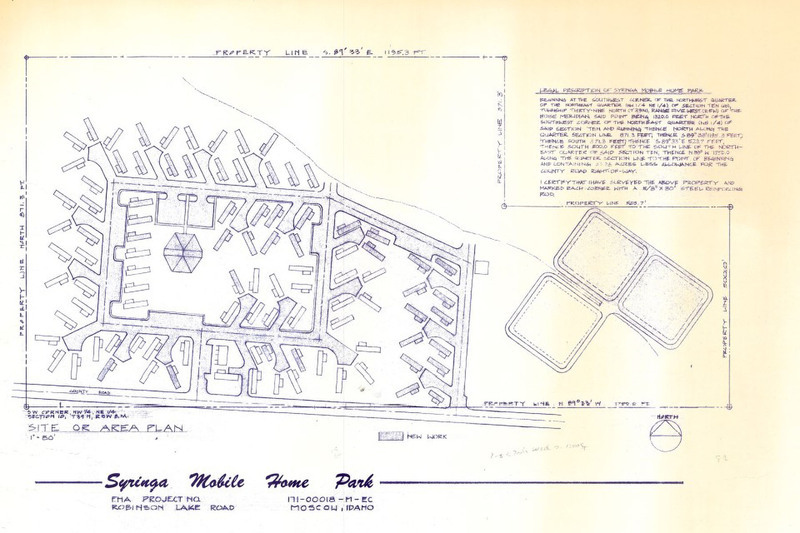 PROPERTY LINE S. 89° 33' E 1195.3 FT
LEGAL DESCRIPTION OF SYRINGA MOBILE HOME PARK
BEGINNING AT THE SOUTHWEST CORNER OF THE NORTHWEST QUARTER
OF THE NORTHEAST QUARTER (NW 1/4 NE 1/4) OF SECTION TEN (10),
TOWNSHIP THIRTY-NINE NORTH (T 39 N), RANGE FIVE WEST OF THE
BOISE MERIDIAN, SAID POINT BEING 1320.0 FEET NORTH OF THE
SOUTHWEST CORNER OF THE NORTHEAST QUARTER (NE 1/4) OF
SAID SECTION TEN AND RUNNING THENCE NORTH ALONG THE
QUARTER SECTION LINE 871.3 FEET; THENCE S 89° 33' E 1195.3 FEET;
THENCE SOUTH FEET; THENCE S 89° 33' E FEET,
THENCE SOUTH 500.0 FEET TO THE SOUTH LINE OF THE NORTH-
EAST QUARTER OF SAID SECTION TEN, THENCE N 89° W
ALONG THE QUARTER SECTION LINE TO THE POINT OF BEGINNING
AND CONTAINING ACRES LESS ALLOWANCE FOR THE
COUNTY ROAD RIGHT-OF-WAY.
I CERTIFY THAT I HAVE SURVEYED THE ABOVE PROPERTY AND
MARKED EACH CORNER WITH A 5/8" X 30" STEEL REINFORCING
ROD.
PROPERTY LINE
PROPERTY LINE
PROPERTY LINE NORTH 871.3 FT
PROPERTY LINE 500.0'
COUNTY ROAD
PROPERTY LINE N 89° 33' W FT
SW CORNER, NW 1/4, NE 1/4
SECTION 10, T 39 N, R 5 W B.M.
SITE OR AREA PLAN
1" = 80'
NEW WORK
NORTH
Syringa Mobile Home Park
FHA PROJECT NO. 171-00018-M-EC
ROBINSON LAKE ROAD MOSCOW, IDAHO